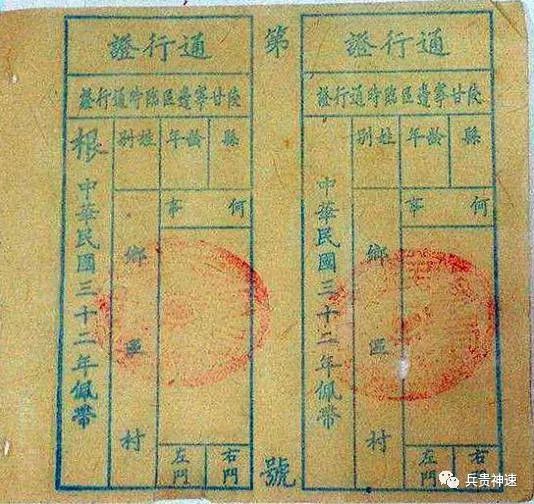 通行證
陝甘寧邊區臨時通行證
縣
年齡
姓別
何事
鄉區村
右門
左門
中華民國三十二年佩帶
第號
通行證
陝甘寧邊區臨時通行證
縣
年齡
姓別
何事
鄉區村
右門
左門
根
中華民國三十二年佩帶
兵贵神速